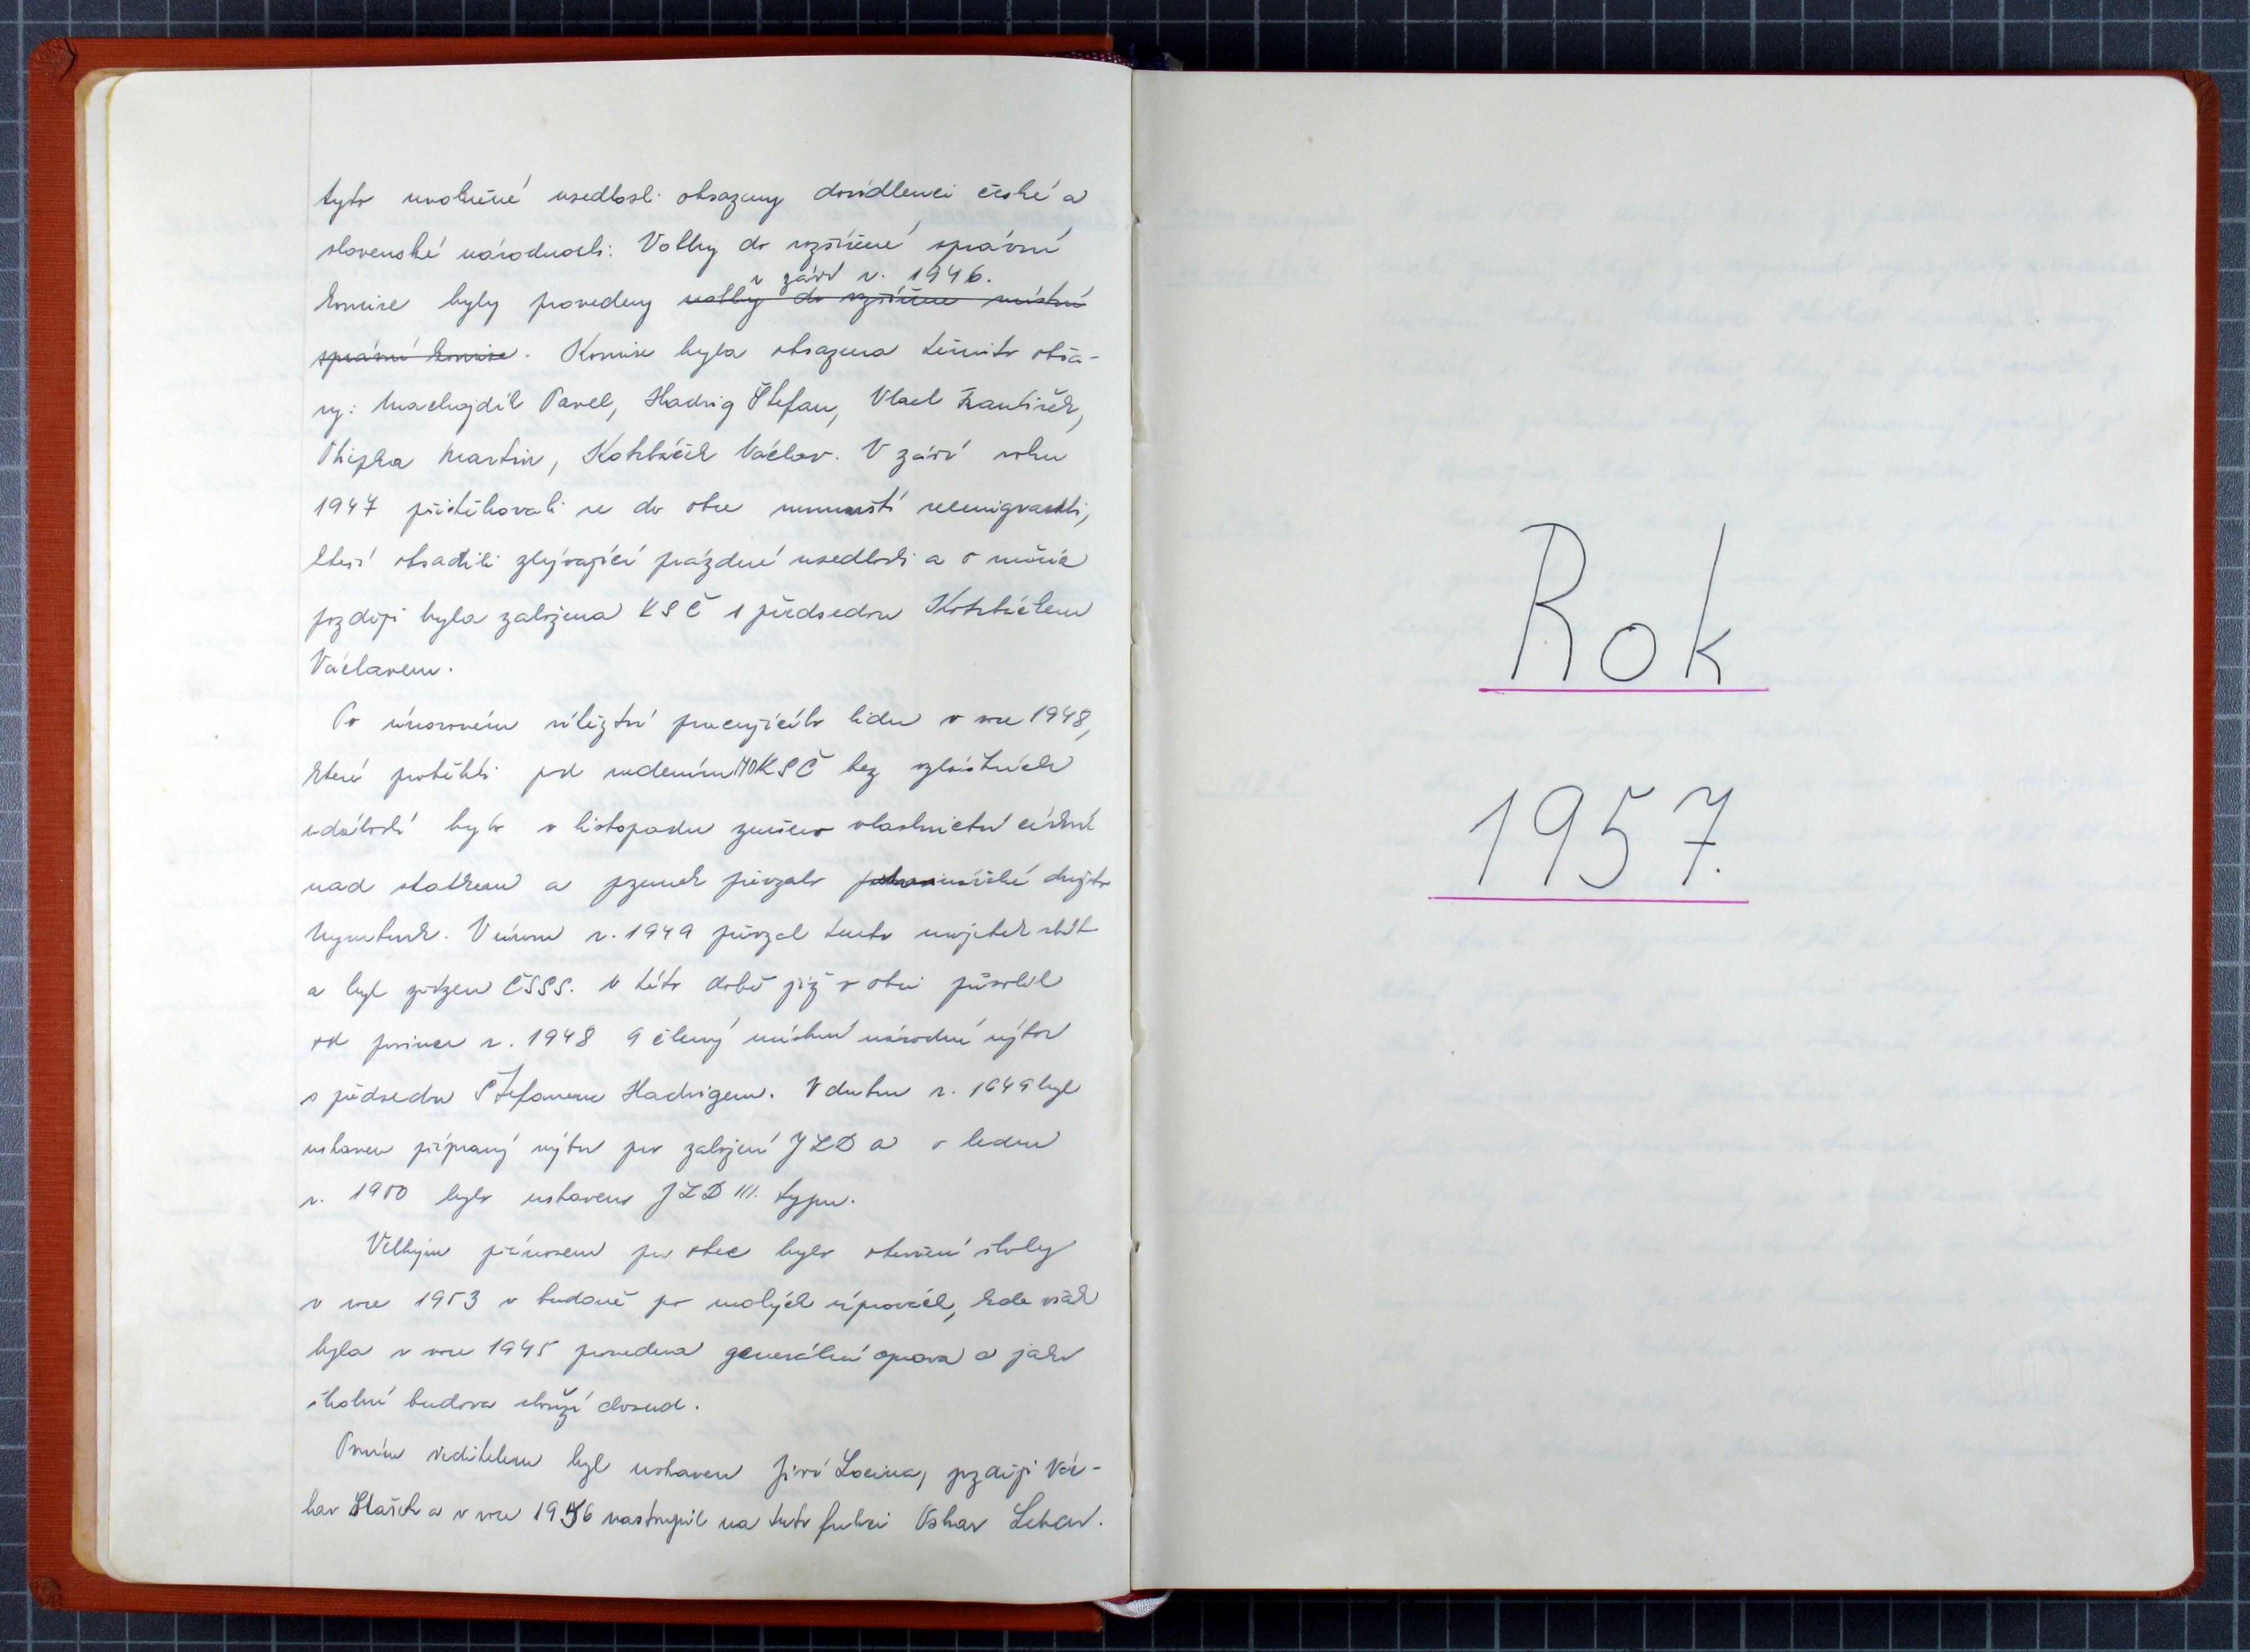 tyto uvolněné usedlosti obsazeny dosídlenci české a
slovenské národnosti. Volby do rozšířené správní
v září r. 1946.
komise byly provedeny volby do rozšířené místní
správní komise. Komise byla obsazena těmito obča-
ny: Machajdík Pavel, Hadvig Štefan, Vlach František,
Martin, Kotrbáček Václav. V září roku
1947 přistěhovali se do obce rumunští reemigranti,
kteří obsadili zbývající prázdné usedlosti a o měsíc
později byla založena KSČ s předsedou Kotrbáčkem
Václavem.
Po únorovém vítězství pracujícího lidu v roce 1948,
které proběhlo pod vedením MOKSČ bez zvláštních
událostí bylo v listopadu zrušeno vlastnictví církve
nad statkem a pozemek převzalo družstvo
Nymburk. V únoru r. 1949 převzal tento majetek stát
a byl zřízen ČSSS. V této době již v obci působil
od prosince r. 1948 9 členný místní národní výbor
s předsedou Štefanem Hadvigem. V dubnu r. 1949 byl
ustaven přípravný výbor pro založení JZD a v lednu
r. 1950 bylo ustaveno JZD III. typu.
Velkým přínosem pro obec bylo otevření školy
v roce 1953 v budově po malých úpravách, kde však
byla v roce 1945 provedena generální oprava a jako
školní budova slouží dosud.
Prvním ředitelem byl ustaven Jiří Locina, později Vác-
lav Stašek a v roce 1956 nastoupil na tuto funkci Oskar Leban.
Rok
1957.